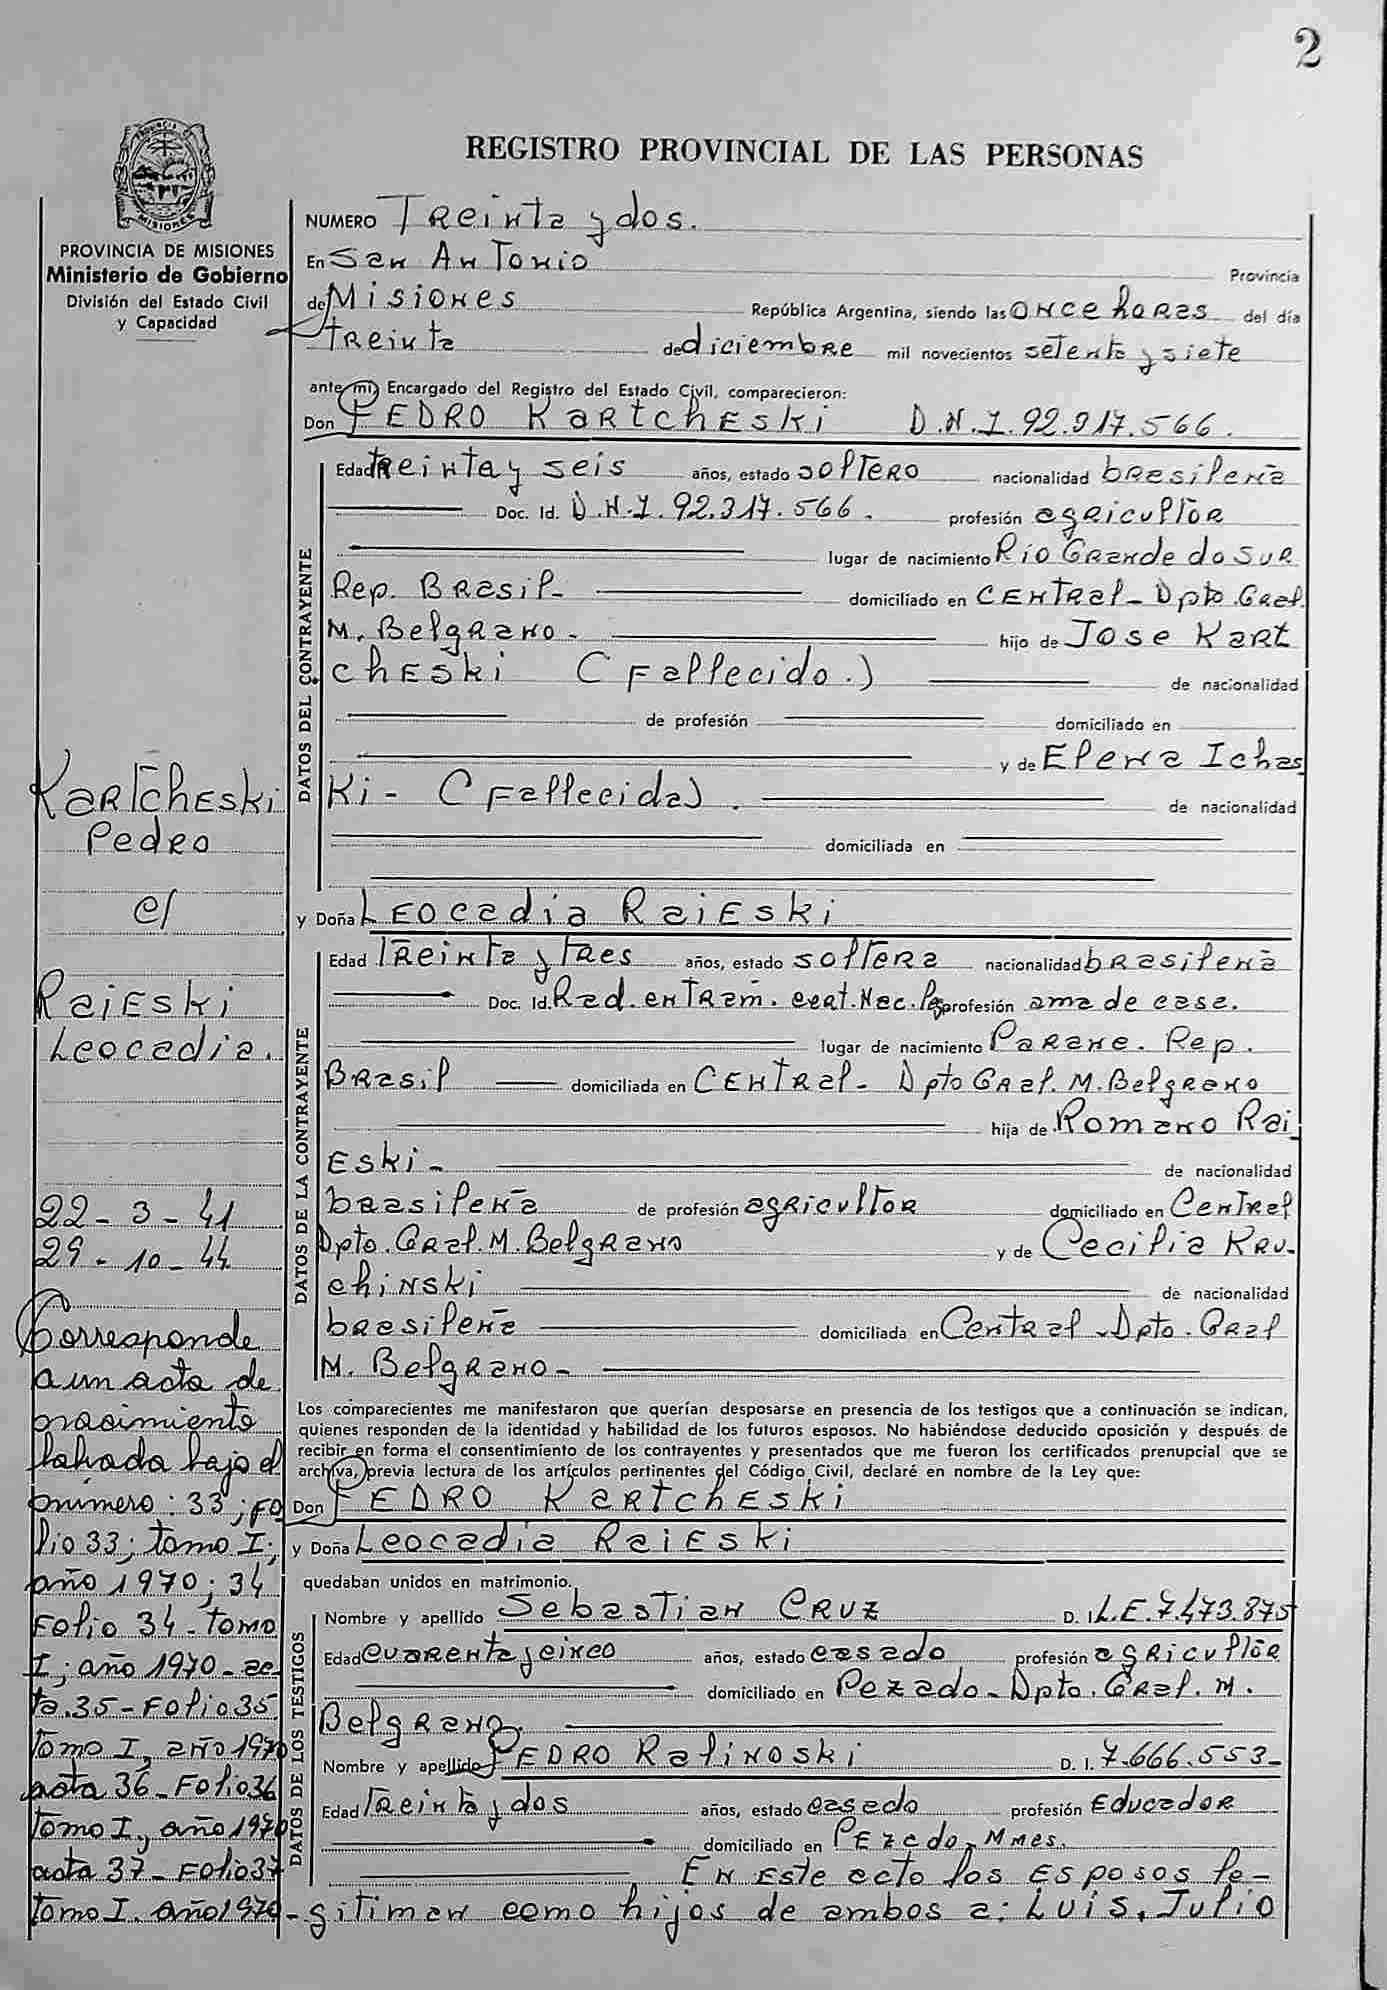 2
REGISTRO PROVINCIAL DE LAS PERSONAS
PROVINCIA DE
MISIONES
PROVINCIA DE MISIONES
Ministerio de Gobierno
División del Estado Civil
y Capacidad
NUMERO Treinta y dos.
En San Antonio Provincia
de Misiones República Argentina, siendo las once horas del día
treinta de diciembre mil novecientos setenta y siete
ante mi, Encargado del Registro del Estado Civil, comparecieron:
Don PEDRO KARTCHESKI D.N.I. 92.317.566.
DATOS DEL CONTRAYENTE
Edad treinta y seis años, estado soltero nacionalidad brasileña
Doc. Id. D.N.I. 92.317.566. profesión agricultor
lugar de nacimiento Rio Grande do Sur
Rep. Brasil- domiciliado en Central- Dpto. Gral.
M. Belgrano- hijo de Jose Kart
cheski (Fallecido.) de nacionalidad
de profesión domiciliado en
y de Elena Ichas
ki- (Fallecida). de nacionalidad
domiciliada en
y Doña Leocadia Raieski
DATOS DE LA CONTRAYENTE
Edad treinta y tres años, estado soltera nacionalidad brasileña
Doc. Id. Rad. en tram. cert. Nac. profesión ama de casa.
lugar de nacimiento Parana. Rep.
Brasil domiciliada en Central- Dpto Gral. M. Belgrano
hija de Romano Rai
eski- de nacionalidad
brasileña de profesión agricultor domiciliado en Central
Dpto. Gral. M. Belgrano y de Cecilia Kru-
chinski de nacionalidad
brasileña domiciliada en Central - Dpto. Gral
M. Belgrano-
Los comparecientes me manifestaron que querían desposarse en presencia de los testigos que a continuación se indican,
quienes responden de la identidad y habilidad de los futuros esposos. No habiéndose deducido oposición y después de
recibir en forma el consentimiento de los contrayentes y presentados que me fueron los certificados prenupcial que se
archiva, previa lectura de los artículos pertinentes del Código Civil, declaré en nombre de la Ley que:
Don PEDRO Kartcheski
y Doña Leocadia Raieski
quedaban unidos en matrimonio.
DATOS DE LOS TESTIGOS
Nombre y apellido Sebastian Cruz D. I. L.E. 7.473.875
Edad cuarenta y cinco años, estado casado profesión agricultor
domiciliado en Pozado- Dpto. Gral. M.
Belgrano.
Nombre y apellido PEDRO Ralinoski D. I. 7.666.553-
Edad treinta y dos años, estado casado profesión Educador
domiciliado en Pozado- Mnes.
En este acto los esposos le-
gitiman como hijos de ambos a: Luis, Julio
Kartcheski
Pedro
c/
Raieski
Leocadia.
22-3-41
29-10-44
Corresponde
a un acta de
nacimiento
labrada bajo el
número: 33; Fo
lio 33; tomo I;
año 1970; 34
Folio 34- tomo
I; año 1970- ac
ta. 35- Folio 35
tomo I, año 1970
acta 36- Folio 36
tomo I, año 1970
acta 37- Folio 37
tomo I. año 1970-